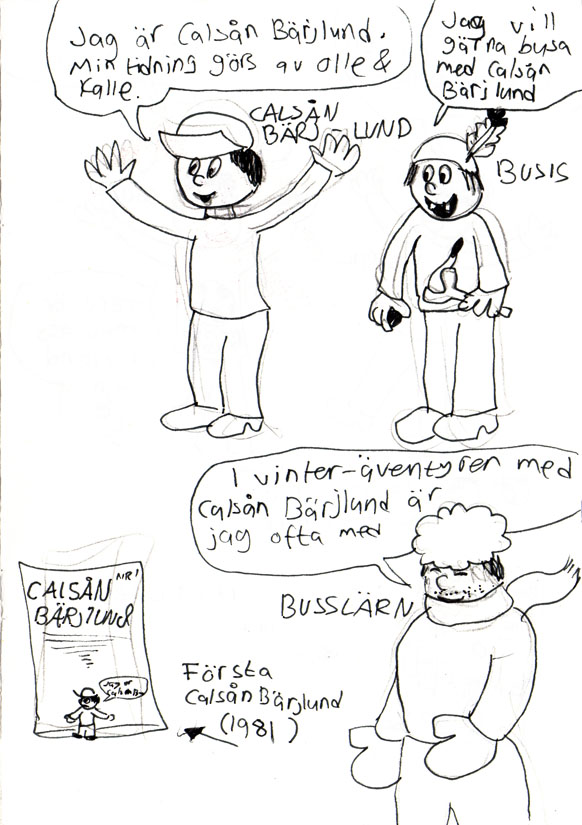 Jag är Calsån Bärjlund.
Min tidning görs av olle &
Kalle.
Jag vill
gärna busa
med Calsån
Bärjlund
CALSÅN
BÄRJLUND
BUSIS
I vinter-äventyren med
Calsån Bärjlund är
jag ofta med
BUSSLÄRN
NR 1
CALSÅN
BÄRJLUND
Jag är
Första
Calsån Bärjlund
(1981)